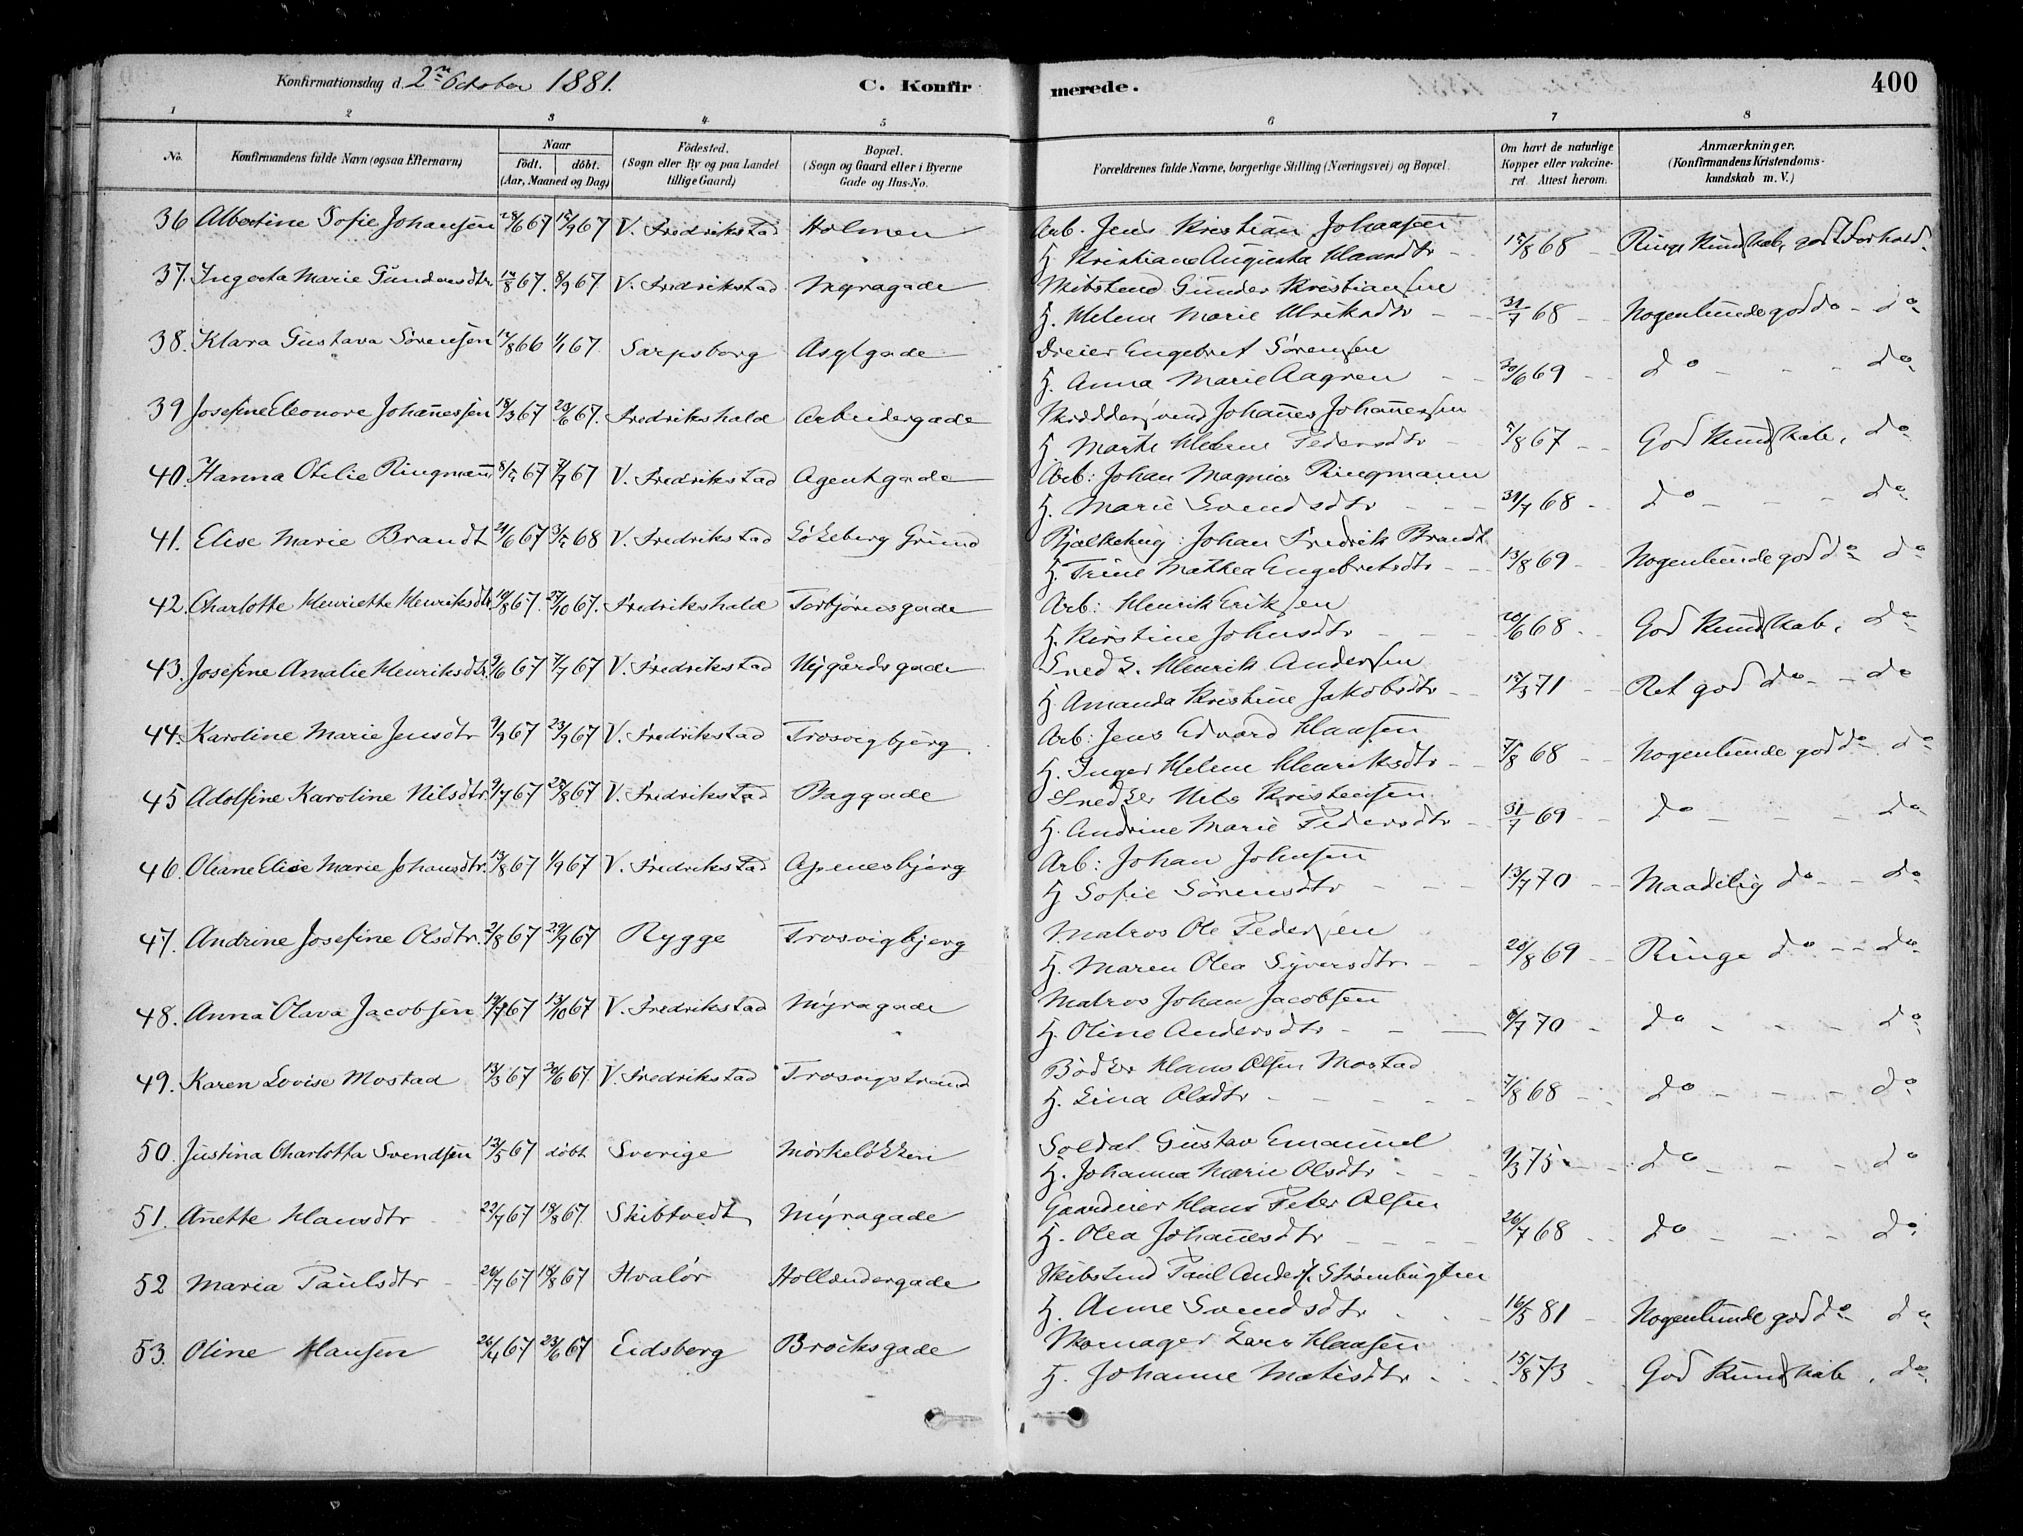 Konfirmationsdag d. 2den October 1881. C. Konfirmerede. 400
1 2 3 4 5 6 7 8
No. Konfirmandens fulde Navn (ogsaa Efternavn) Naar født. døbt. (Aar, Maaned og Dag) Fødested. (Sogn eller By og paa Landet tillige Gaard) Bopæl. (Sogn og Gaard eller i Byerne Gade og Hus-No. Forældrenes fulde Navne, borgerlige Stilling (Næringsvei) og Bopæl. Om havt de naturlige Kopper eller vakcineret. Attest herom. Anmærkninger. (Konfirmandens Kristendomskundskab m. V.)
36 Albertine Sofie Johansen 28/6 67 15/9 67 V. Fredrikstad Holmen Arb. Jens Kristian Johansen
H. Kristiane Augusta Hansdtr 15/8 68 Ringe Kundskab, godt Forhold.
37. Ingerta Marie Gundersdtr 12/8 67. 8/9 67 V. Fredrikstad Myragade Skibstmd Gunder Kristiansen
H. Helene Marie Ulriksdtr 31/7 68 Nogenlunde god do do
38. Klara Gustava Sørensen 17/8 66 1/1 67. Sarpsborg Asylgade Dreier Engebret Sørensen
H. Anna Marie Aagren 20/6 69 do do
39 Josefine Eleonore Johannessen 18/3 67 23/6 67. Fredrikshald Arbeidergade Skræddersvend Johannes Johannessen
H. Marte Helene Pedersdtr 5/8 67 God Kundskab, do
40. Hanna Otilie Ringmann 8/5 67 7/7 67 V. Fredrikstad Agentgade Arb: Johan Magnus Ringmann
H. Marie Svendsdtr 31/7 68 do do
41. Elise Marie Brandt 21/6 67 3/5 68 V. Fredrikstad Løkeberg Grund Bjælkehug: Johan Fredrik Brandt
H. Trine Mathea Engebretsdtr 13/8 69 Nogenlunde god do do
42. Charlotte Henriette Henriksdtr 14/8 67. 27/10 67. Fredrikshald Torbjørnsgade Arb: Henrik Eriksen
H. Kirstine Johnsdtr 20/6 68 God Kundskab, do
43. Josefine Amalie Henriksdtr. 9/6 67 7/7 67 V. Fredrikstad Nygårdsgade Snedk. Henrik Andersen
H Amanda Kristine Jakobsdtr 15/3 71 Ret god do do
44. Karoline Marie Jensdtr 9/9 67 23/9 67 V. Fredrikstad Trosvigbjerg. Arb: Jens Edvard Hansen
H. Inger Helene Henriksdtr 7/8 68 Nogenlunde god do do
45 Adolfine Karoline Nilsdtr. 9/7 67 25/8 67 V. Fredrikstad Baggade Snedker Nils Kristensen
H. Andrine Marie Pedersdtr 31/7 69 do do
46. Oleane Elise Marie Johansdtr. 13/8 67 1/9 67 V. Fredrikstad Apenesbjerg Arb: Johan Johnsen
H Sofie Sørensdtr 13/7 70 Maadelig do do
47. Andrine Josefine Olsdtr. 2/8 67 29/9 67 Rygge Trosvigbjerg Matros Ole Pedersen
H. Maren Olea Syversdtr 20/8 69 Ringe do do
48. Anna Olava Jacobsen 19/7 67 13/10 67 V. Fredrikstad Myragade Matros Johan Jacobsen
H. Oline Andersdtr 6/7 70 do do
49. Karen Lovise Mostad 13/3 67 30/6 67. V. Fredrikstad Trosvigstrand Bødker Hans Olsen Mostad
H. Lina Olsdtr 7/8 68 do do
50. Justina Charlotta Svendsen 13/5 67 døbt Sverige Mørkeløkken Soldat Gustav Emanuel
H. Johanna Marie Olsdtr 9/3 75 do do
51. Anette Hansdtr 22/7 67 18/8 67. Skibtvedt Myragade Gaardeier Hans Peter Olsen
H. Olea Johannesdtr 26/7 68 do do
52 Maria Paulsdtr 20/7 67 18/8 67 Hvalør Hollændergade Skibstmd Paul Anders. Strømbugten
H. Anne Svendsdtr 16/5 81 Nogenlunde god do do
53. Oline Hansen 26/4 67 23/6 67 Eidsberg Brochsgade Skomager Lars Hansen
H. Johanne Matisdtr 15/8 73 God Kundskab, do